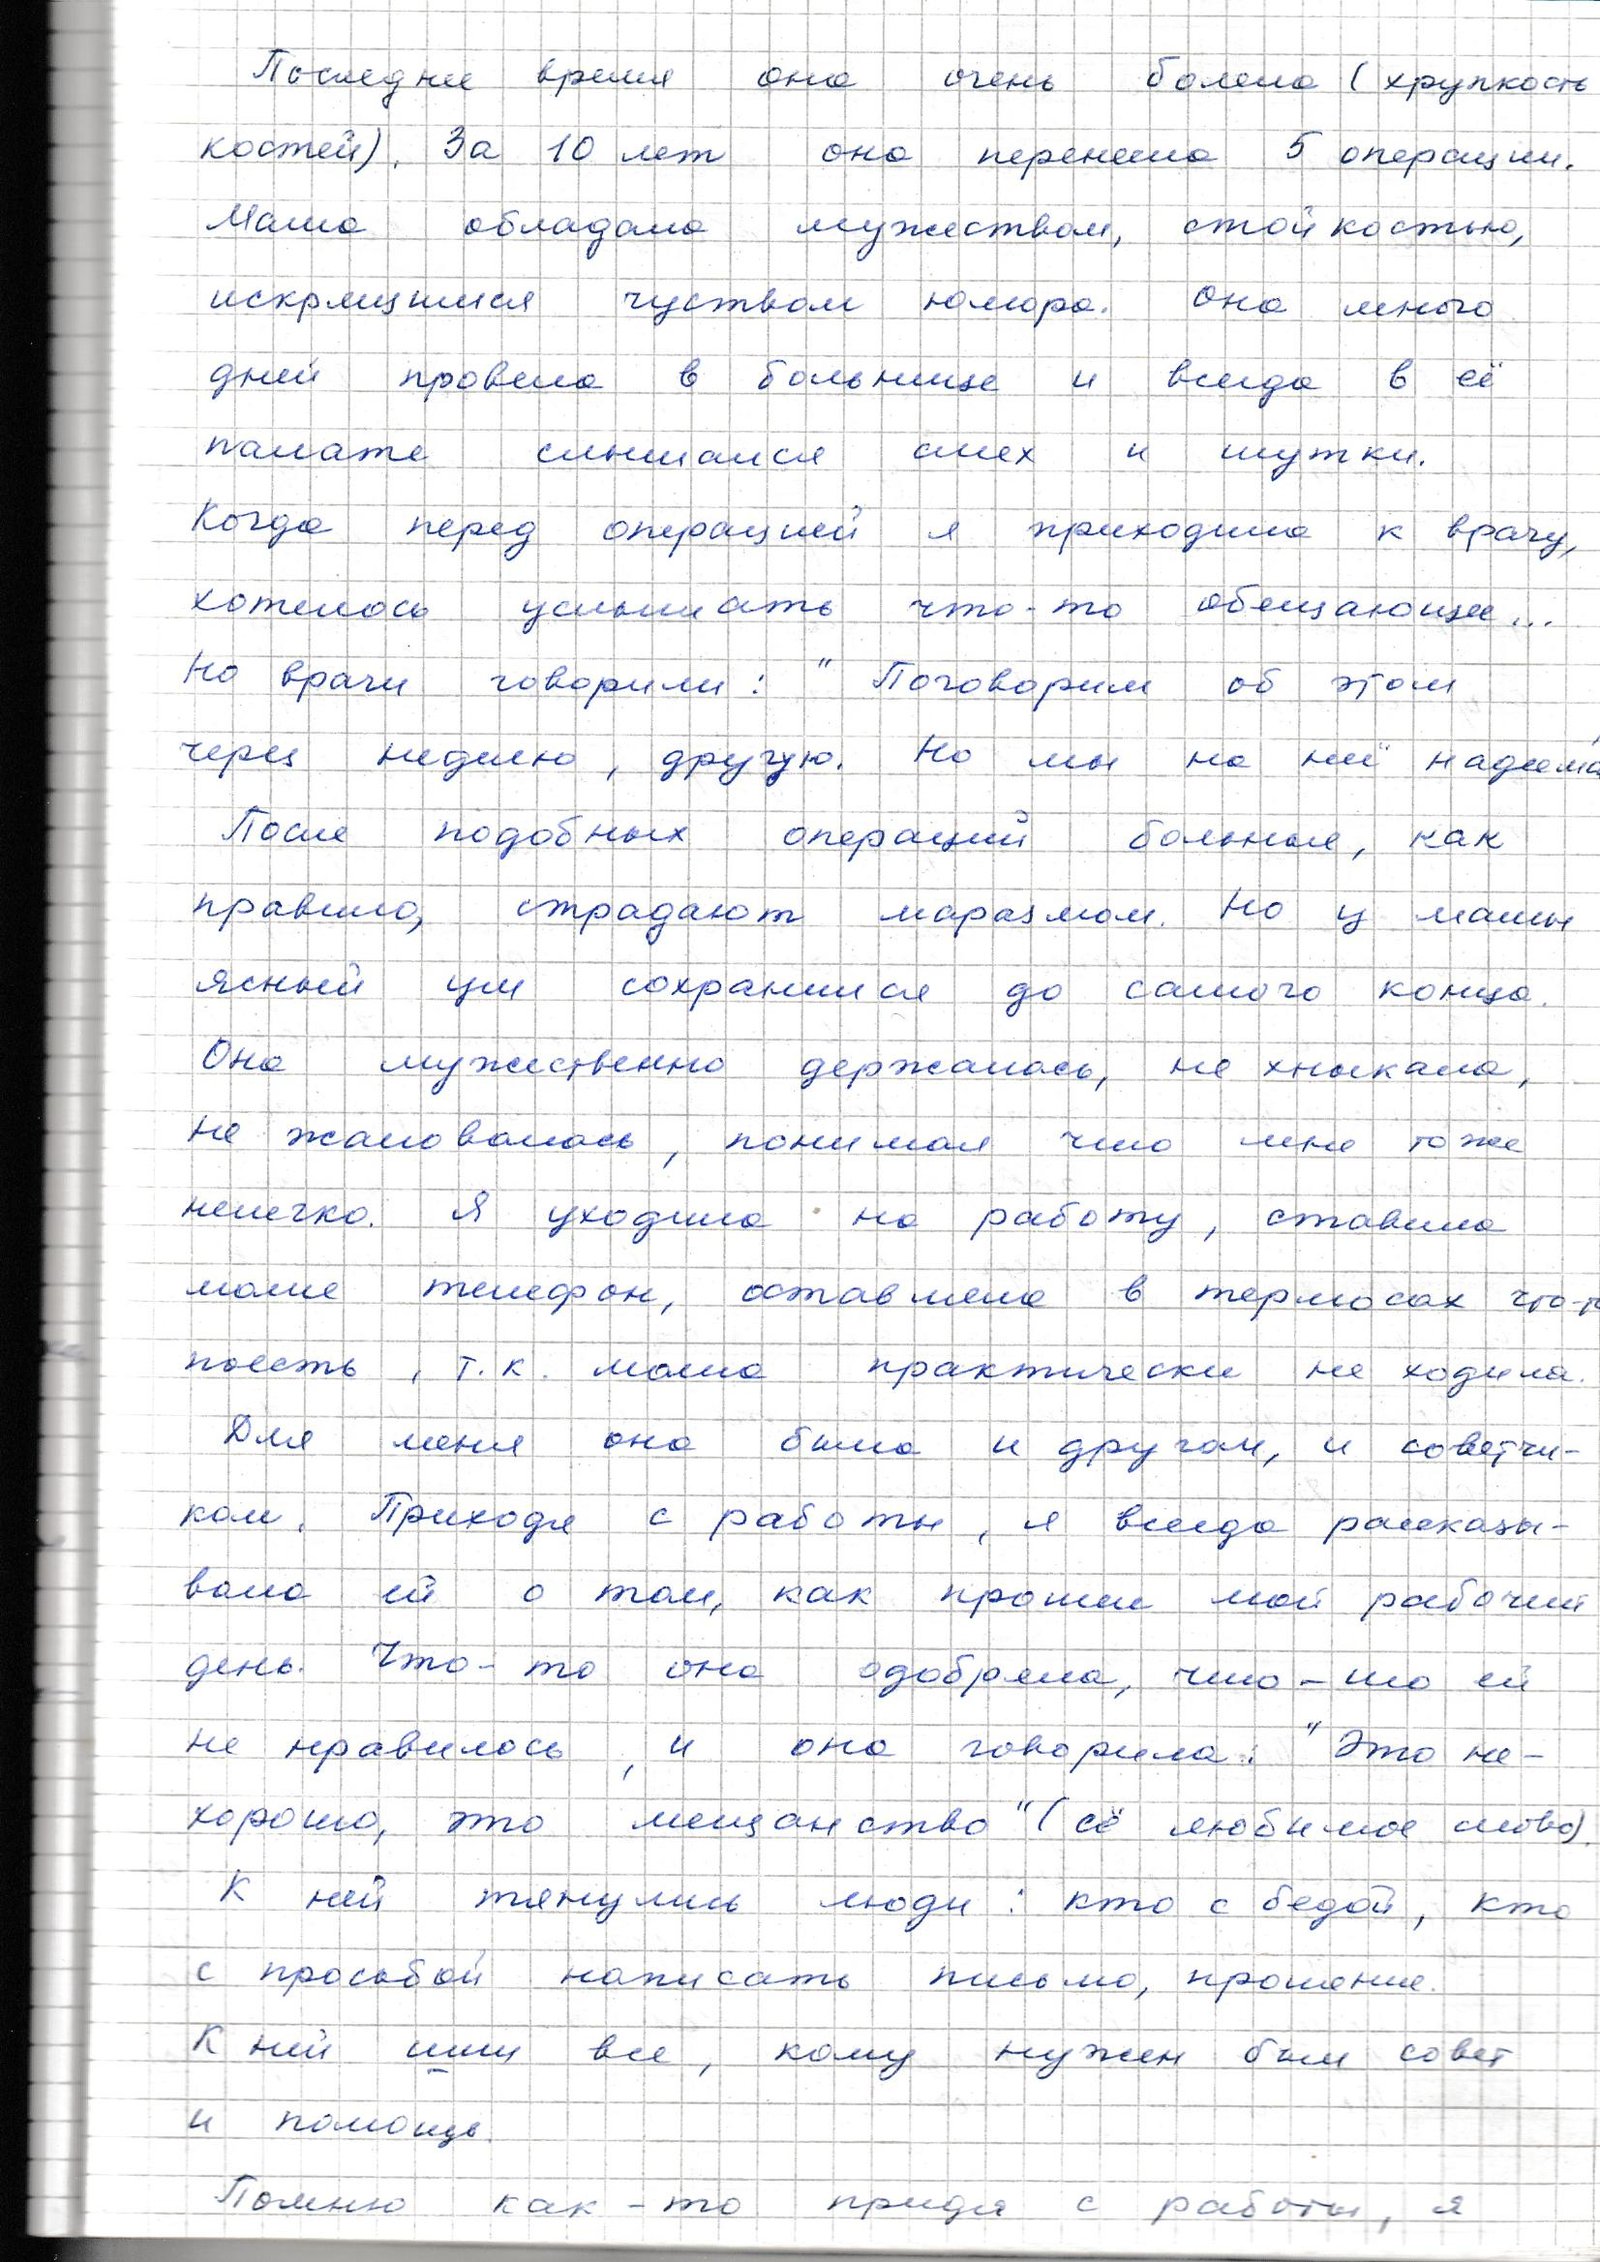 Последнее время она очень болела (хрупкость
костей). За 10 лет она перенесла 5 операции.
Мама обладала мужеством, стойкостью,
искрящимся чуством юмора. Она много
дней провела в больнице и всегда в её
палате слышался смех и шутки.
Когда перед операцией я приходила к врачу,
хотелось услышать что-то обещающее...
Но врачи говорили: "Поговорим об этом
через неделю, другую. Но мы на неё надеема
После подобных операций больные, как
правило, страдают маразмом. Но у мамы
ясный ум сохранился до самого конца.
Она мужественно держалась, не хныкала,
не жаловалась, понимая что мне тоже
нелегко. Я уходила на работу, ставила
маме телефон, оставляла в термосах что-то
поесть, т.к. мама практически не ходила.
Для меня она была и другом, и советчи-
ком. Приходя с работы, я всегда рассказы-
вала ей о том, как прошел мой рабочий
день. Что-то она одобряла, что-то ей
не нравилось, и она говорила: "Это не-
хорошо, это мещанство" (её любимое слово).
К ней тянулись люди: кто с бедой, кто
с просьбой написать письмо, прошение.
К ней шли все, кому нужен был совет
и помощь.
Помню как-то придя с работы, я